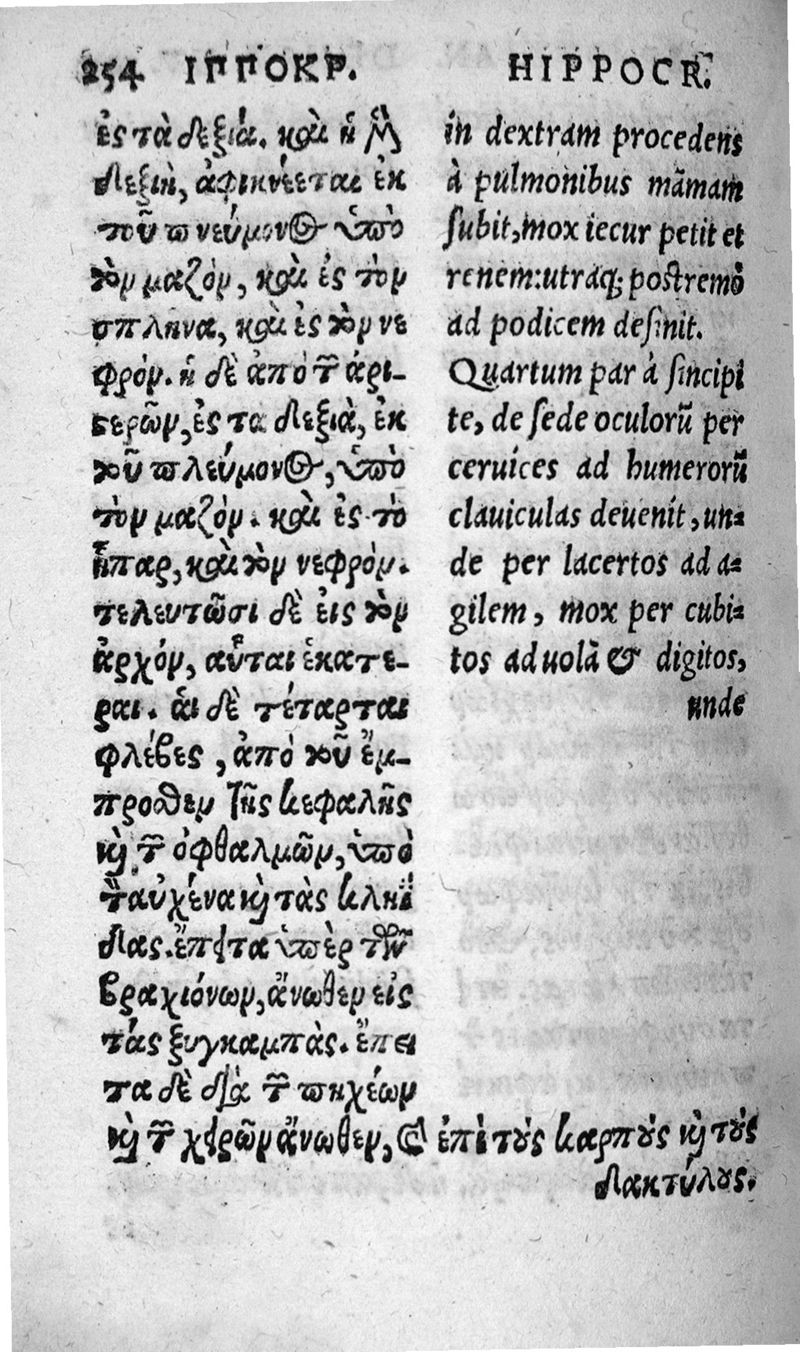 254 ΙΠΠΟΚΡ.
ἐς τὰ δεξιά. καὶ ἡ μὲν
δεξιὴ, ἀφικνέεται ἐκ
τοῦ πνεύμονος ὑπὸ
τὸν μαζὸν, καὶ ἐς τὸν
σπλῆνα, καὶ ἐς τὸν νε
φρόν. ἡ δὲ ἀπὸ τῶν ἀρι-
στερῶν, ἐς τα δεξιὰ, ἐκ
τοῦ πλεύμονος, ὑπὸ
τὸν μαζὸν. καὶ ἐς τὸ
ἧπαρ, καὶ τὸν νεφρὸν.
τελευτῶσι δὲ εἰς τὸν
ἀρχόν, αὗται ἑκατε-
ραι. ἁι δὲ τέταρται
φλέβες, ἀπὸ τοῦ ἔμ-
προσθεν τῆς κεφαλῆς
καὶ τῶν ὀφθαλμῶν, ὑπὸ
τὸν αὐχένα καὶ τὰς κληῗ
δας. ἔπειτα ὑπὲρ τῶν
βραχιόνων, ἄνωθεν εἰς
τάς ξυγκαμπὰς. ἔπει
τα δὲ διὰ τῶν πηχέων
καὶ τῶν χειρῶν ἄνωθεν, ἐπὶ τοὺς καρποὺς καὶ τοὺς
δακτύλους.
HIPPOCR.
in dextram procedens
à pulmonibus mãmam
subit, mox iecur petit et
renem: utráq; postremò
ad podicem desinit.
Quartum par à sincipi
te, de sede oculorũ per
ceruices ad humerorũ
clauiculas deuenit, un-
de per lacertos ad a-
gilem, mox per cubi-
tos ad uolã & digitos,
unde